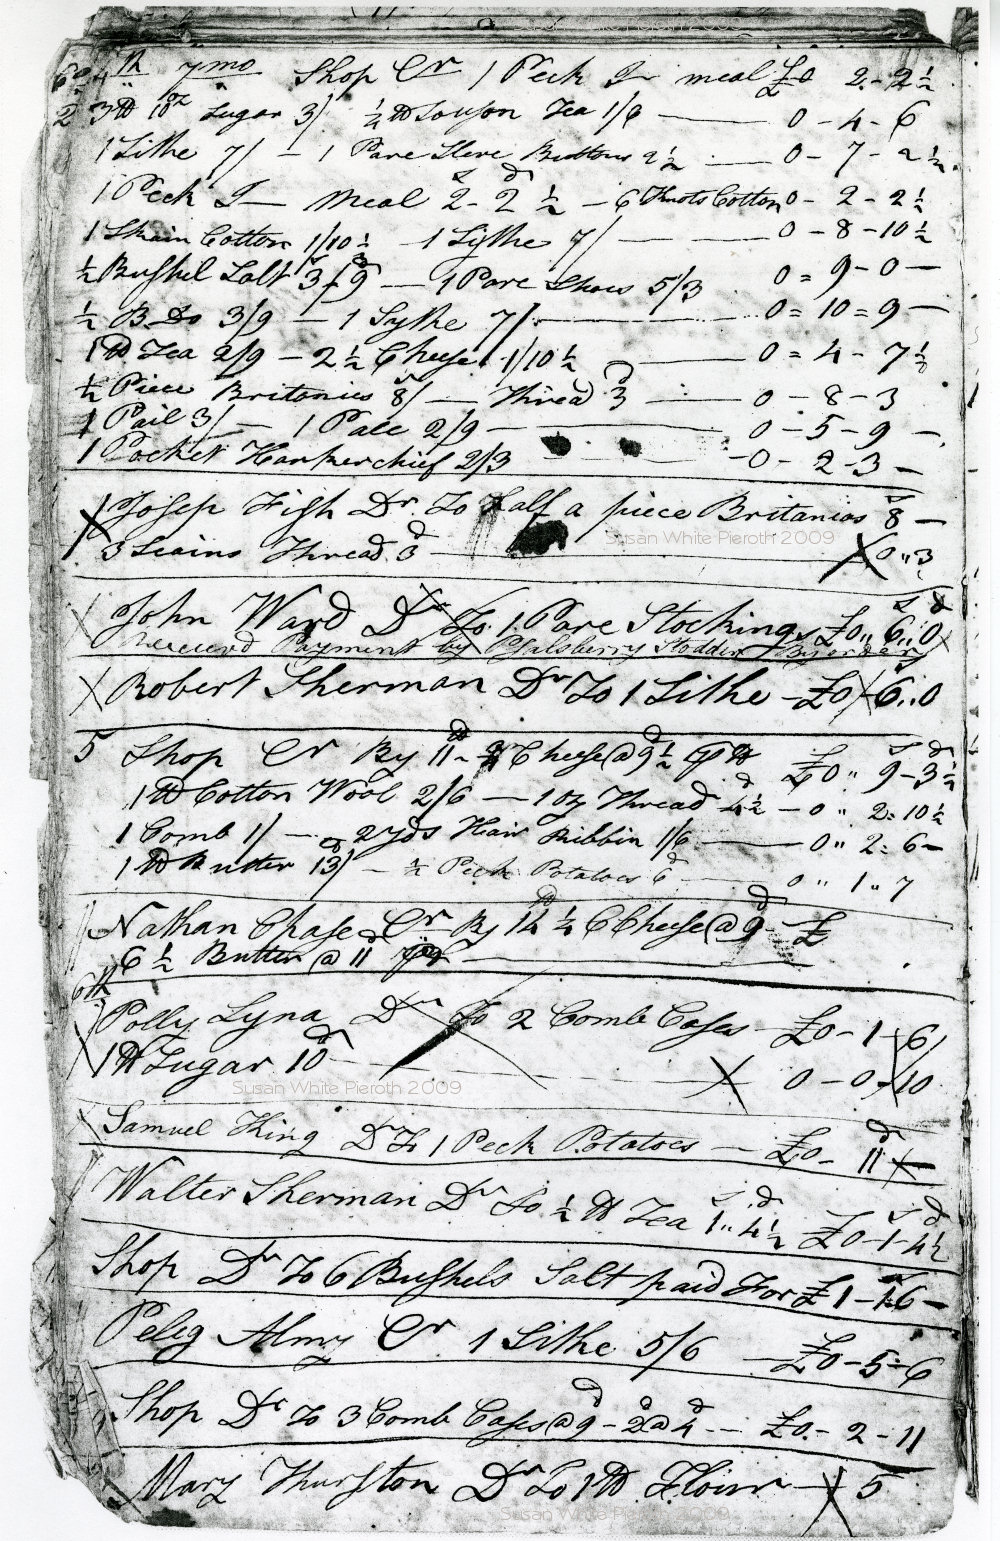 4th 7mo Shop Cr 1 Peck I meal £0 2 - 2 1/2
2 3 lb 10 oz Sugar 3/ 1/4 lb Souson Tea 1/6 — 0 - 4 - 6
1 Sithe 7/ — 1 Pare Sleve Buttons 2 1/2 — 0 - 7 - 2 1/2
1 Peck I — Meal 2 - 2 1/2 — 6 Knots Cotton 0 - 2 - 2 1/2
1 Skain Cotton 1/10 1/2 — 1 Sythe 7/ — 0 - 8 - 10 1/2
1/2 Bushil Salt 3/9 — 1 Pare Shoes 5/3 0 = 9 - 0 —
1/2 B Do 3/9 — 1 Sythe 7/ — 0 = 10 = 9 —
1 lb Tea 2/9 — 2 1/2 Cheese 1/10 1/2 — 0 = 4 - 7 1/2
1/2 Piece Britanies 8/ — Thread 3 d — 0 - 8 - 3
1 Pail 3/ — 1 Pale 2/9 — 0 - 5 - 9 —
1 Pocket Hankerchief 2/3 — 0 - 2 - 3 —
Josep Fish Dr To Half a piece Britanias 8 s —
3 Scains Thread 3 d — 0 „ 3
John Ward Dr To 1 Pare Stockings £0 „ 6 „ 0
Receiecd Payment by Salsberry Stodder By order
Robert Sherman Dr To 1 Sithe — £0 - 6 „ 0
5 Shop Cr By 11 lb Cheese @ 9 1/2 d £0 „ 9 - 3 1/2
1 lb Cotton Wool 2/6 — 1 oz Thread 4 1/2 d — 0 „ 2 = 10 1/2
1 Comb 1/ — 2 yds Hair Ribbin 1/6 — 0 „ 2 = 6 —
1 lb Butter 13 d/ — 1/2 Peck Potatoes 6 d — 0 „ 1 „ 7
Nathan Chase Cr By 14 1/4 lb Cheese @ 9 d £
6 1/2 Butter @ 11 d
6th
Polly Lyna Dr To 2 Comb Cases — £0 - 1 - 6
1 lb Sugar 10 d — 0 - 0 - 10
Samuel King Dr To 1 Peck Potatoes — £0 - 11 d
Walter Sherman Dr To 1/2 lb Tea 1 „ 4 1/2 £0 - 1 - 4 1/2
Shop Dr To 6 Bushels Salt paid For £1 - 16 —
Peleg Almy Cr 1 Sithe 5/6 — £0 - 5 = 6
Shop Dr To 3 Comb Cases @ 9 d - 2 d @ 4 d — £0 - 2 - 11
Mary Thurston Dr To 1 lb Flour — 5
Susan White Pieroth 2009
Susan White Pieroth 2009
Susan White Pieroth 2009